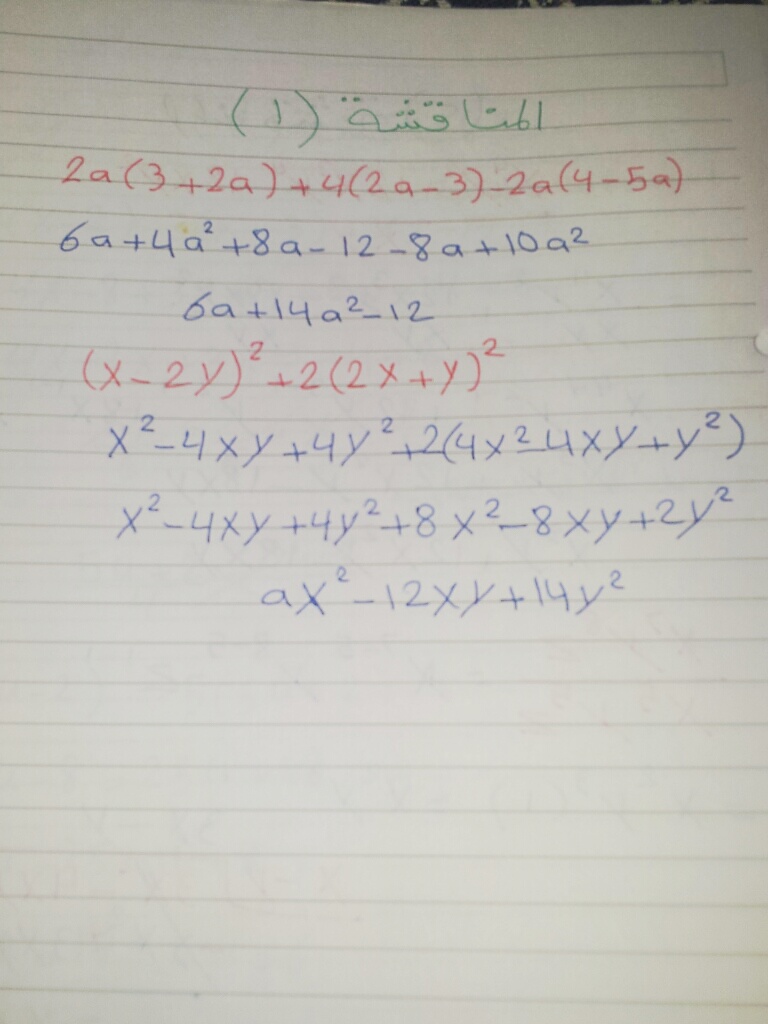 المناقشة (١)
2a(3+2a)+4(2a-3)-2a(4-5a)
6a+4a²+8a-12-8a+10a²
6a+14a²-12
(x-2y)²+2(2x+y)²
x²-4xy+4y²+2(4x²-4xy+y²)
x²-4xy+4y²+8x²-8xy+2y²
ax²-12xy+14y²